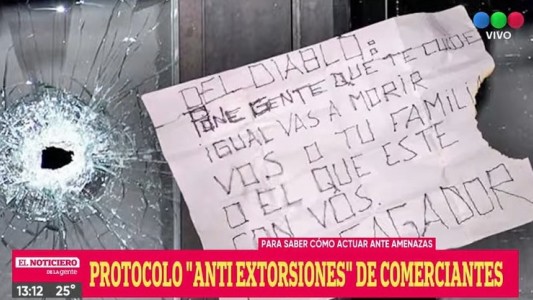 VIVO
DEL DIABLO:
PONE GENTE QUE TE CUIDE
IGUAL VAS A MORIR
VOS O TU FAMILI
O EL QUE ESTE
CON VOS.
AGADOR
PARA SABER CÓMO ACTUAR ANTE AMENAZAS
EL NOTICIERO
DE LA gente
PROTOCOLO "ANTI EXTORSIONES" DE COMERCIANTES
13:12 25°